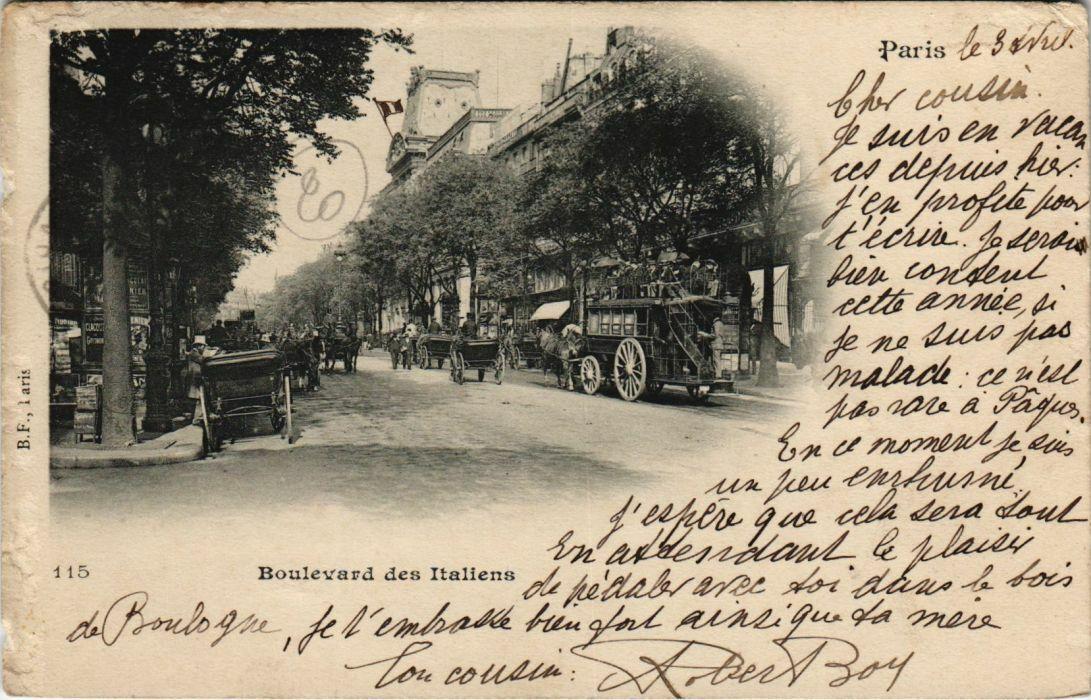 Paris le 3 avril.
Cher cousin.
Je suis en vacan
ces depuis hier:
j'en profite pour
t'écrire. Je serais
bien content
cette année, si
je ne suis pas
malade: ce n'est
pas rare à Pâques.
En ce moment je suis
un peu enrhumé,
J'espère que cela sera tout
En attendant le plaisir
de pédaler avec toi dans le bois
de Boulogne, je t'embrasse bien fort ainsi que ta mère
Ton cousin: Robert Boy
115 Boulevard des Italiens
B.F., Paris